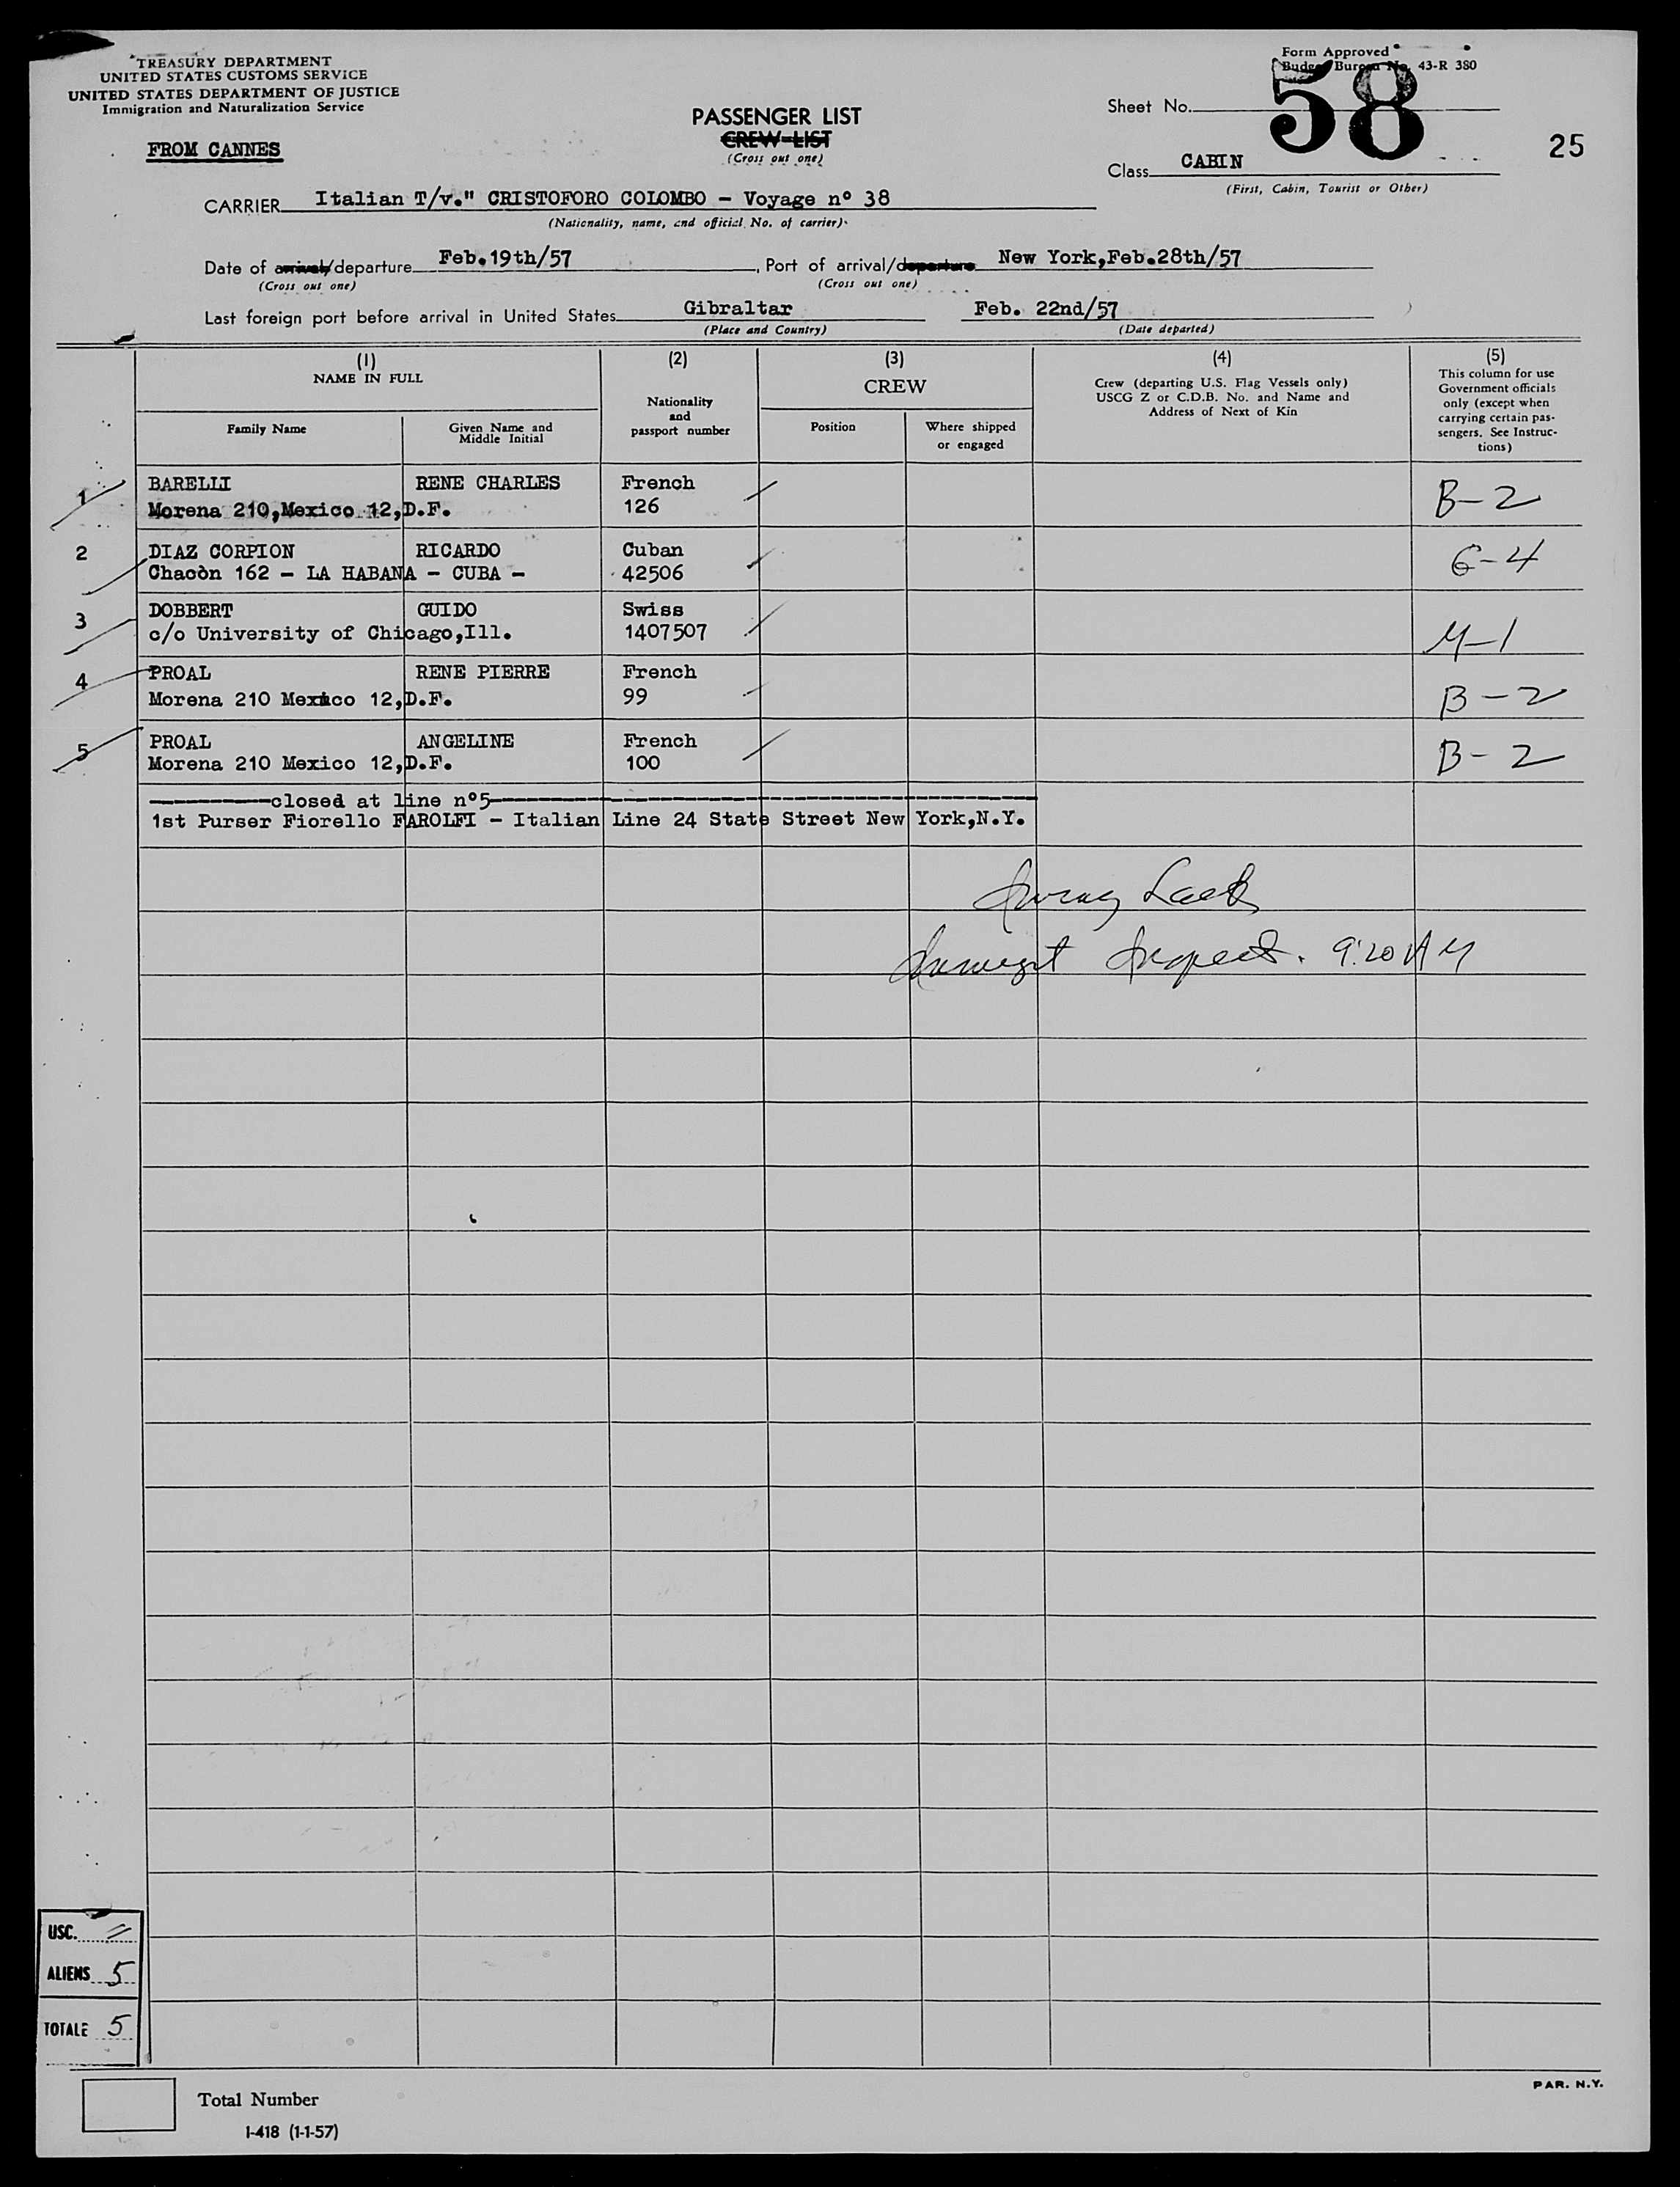 TREASURY DEPARTMENT
UNITED STATES CUSTOMS SERVICE
UNITED STATES DEPARTMENT OF JUSTICE
Immigration and Naturalization Service
FROM CANNES
PASSENGER LIST
CREW LIST
(Cross out one)
Form Approved
Budget Bureau No. 43-R 380
Sheet No. 58
25
Class CABIN
(First, Cabin, Tourist or Other)
CARRIER Italian T/v." CRISTOFORO COLOMBO - Voyage nº 38
(Nationality, name, and official No. of carrier)
Date of arrival/departure Feb.19th/57, Port of arrival/departure New York,Feb.28th/57
(Cross out one) (Cross out one)
Last foreign port before arrival in United States Gibraltar Feb. 22nd/57
(Place and Country) (Date departed)
(1) (2) (3) (4) (5)
NAME IN FULL
Family Name
Given Name and
Middle Initial
Nationality
and
passport number
CREW
Position
Where shipped
or engaged
Crew (departing U.S. Flag Vessels only)
USCG Z or C.D.B. No. and Name and
Address of Next of Kin
This column for use
Government officials
only (except when
carrying certain pas-
sengers. See Instruc-
tions)
1 BARELLI RENE CHARLES French B-2
Morena 210,Mexico 12,D.F. 126
2 DIAZ CORPION RICARDO Cuban G-4
Chacòn 162 - LA HABANA - CUBA - 42506
3 DOBBERT GUIDO Swiss
c/o University of Chicago,Ill. 1407507
4 PROAL RENE PIERRE French B-2
Morena 210 Mexico 12,D.F. 99
5 PROAL ANGELINE French B-2
Morena 210 Mexico 12,D.F. 100
----------closed at line nº5----------
1st Purser Fiorello FAROLFI - Italian Line 24 State Street New York,N.Y.
9:20 AM
USC. =
ALIENS 5
TOTALE 5
Total Number
I-418 (1-1-57)
PAR. N.Y.